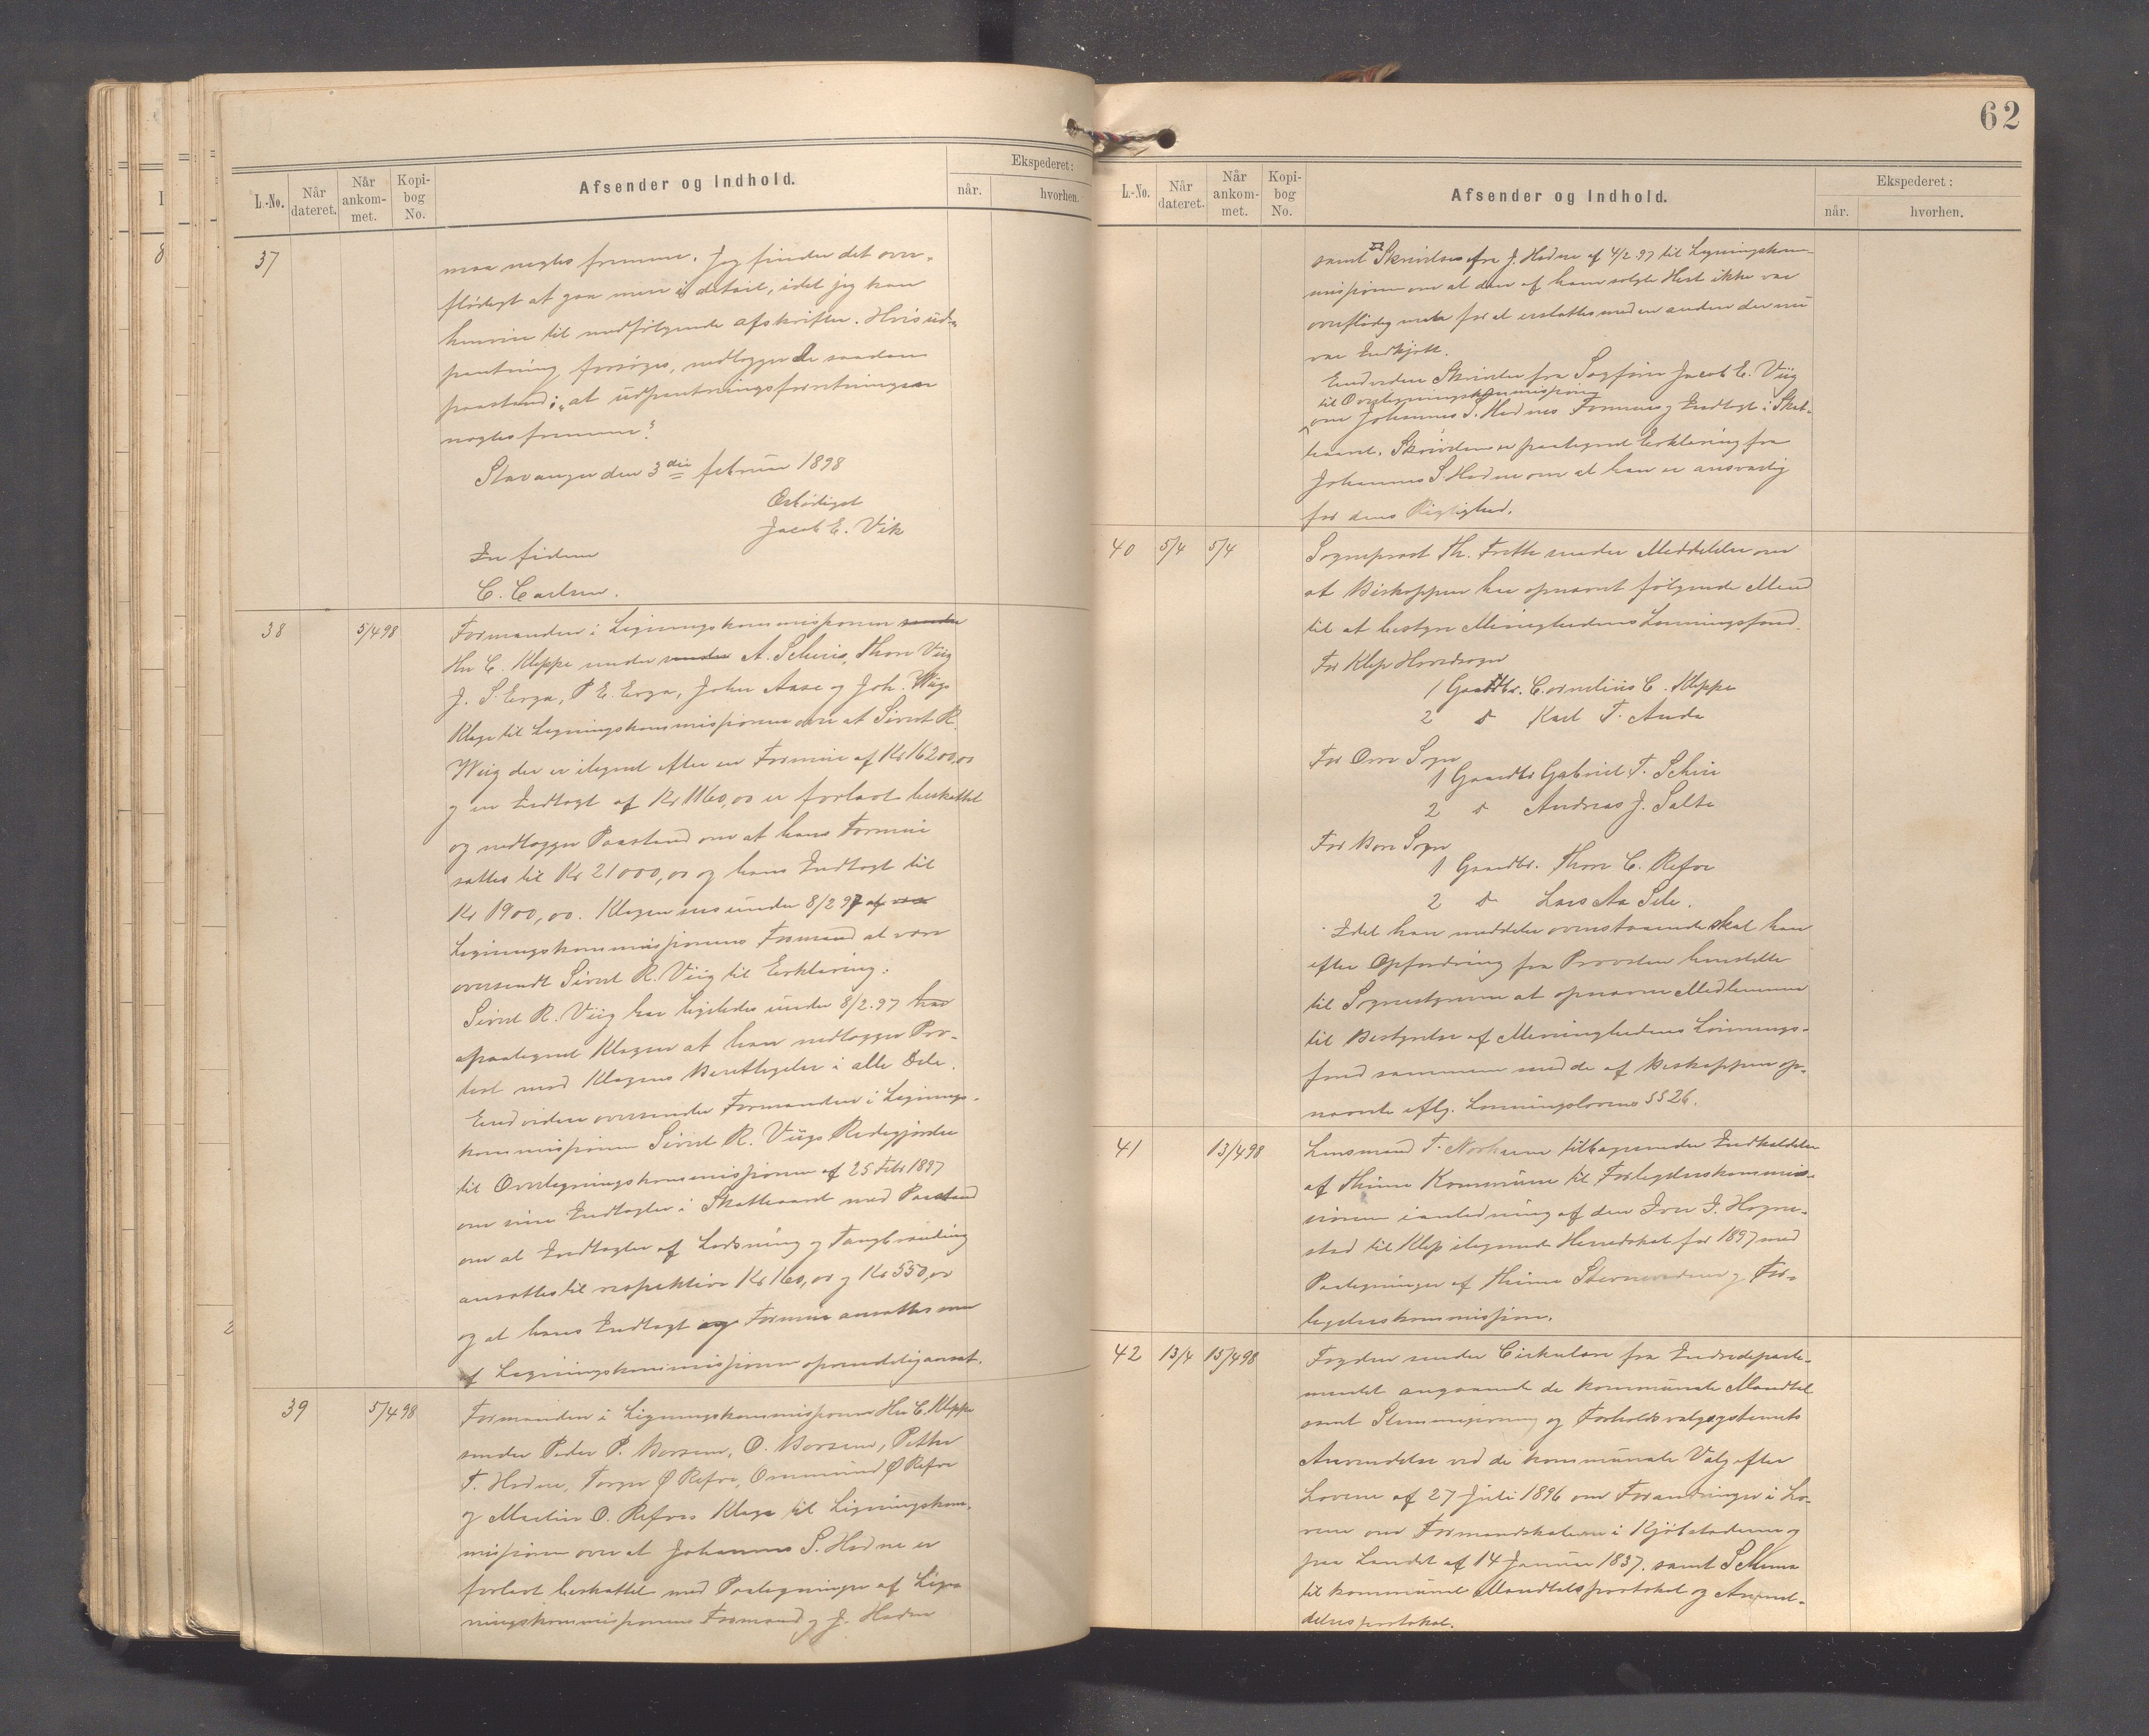 L.-No.
Når dateret.
Når ankommet.
Kopibog No.
Afsender og Indhold.
Ekspederet:
når.
hvorhen.
37
maa negtes fremme. Jeg finder det over-
flødigt at gaa mere i detail, idet jeg kan
henvise til medfølgende afskrifter. Hvis ud-
pantning forsøges, nedlægges de saadan
paastand: "at udpantningsforretningen
negtes fremme".
Stavanger den 3die februar 1898
Ærbødigst
Jacob E. Vik
In fidem
C. Carlsen.
38
5/4 98
Formanden i Ligningskommissionen sender
Hr C. Kleppe sender sender A. Scheie, Thore Viig
J. S. Erga, P E. Erga, John Aase og Joh. Wiigs
Klage til Ligningskommissionen over at Sivert R.
Wiig der er ilignet efter en Formue af Kr 16200,00
og en Indtægt af Kr 1160,00 er for lavt beskattet
og nedlægger Paastand om at hans Formue
sættes til Kr 21000,00 og hans Indtægt til
Kr 1900,00. Klagen sees under 8/2 97 af
Ligningskommissionens Formand at være
oversendt Sivert R. Viig til Erklæring.
Sivert R. Viig har ligeledes under 8/2.97 har
paategnet Klagen at han nedlægger Pro-
test mod Klagens Berettigelse i alle Dele.
Endvidere oversender Formanden i Lignings-
kommissionen Sivert R. Viigs Redegjørelse
til Overligningskommissionen af 25 Febr 1897
om sine Indtægter i Skatteaaret med Paastand
om at Indtægten af Lodsning og Tangbrænding
ansættes til respektive Kr 160,00 og Kr 550,00
og at hans Indtægt og Formue ansættes som
af Ligningskommissionen oprindelig ansat.
39
5/4 98
Formanden i Ligningskommissionen Hr C. Kleppe
sender Peder P. Borsem, O. Borsem, Petter
T. Hodne, Torger Ø Refve, Ommund Ø Refve
og Martin O. Refves Klage til Ligningskom-
missionen over at Johannes S. Hodne er
for lavt beskattet med Paategninger af Lig-
ningskommissionens Formand og J. Hodne
62
L.-No.
Når dateret.
Når ankommet.
Kopibog No.
Afsender og Indhold.
Ekspederet:
når.
hvorhen.
samt Skrivelse fra J. Hodne af 4/2 97 til Ligningskom-
missionen om at den af ham solgte Hest ikke var
overflødig men for at erstattes med en anden der nu
var Indkjøbt.
Endvidere Skrivelse fra Sagfører Jacob E. Viig
til Overligningskommission
om Johannes S. Hodnes Formue og Indtægt i Skat-
teaaret. Skrivelsen er paategnet Erklæring fra
Johannes S. Hodne om at han er ansvarlig
for dens Rigtighed.
40
5/4
5/4
Sogneprest Th. Freth sender Meddelelse om
at Biskoppen har opnævnt følgende Mænd
til at bestyre Menighedens Lønningsfond.
For Klep Hovedsogn
1 Gaardbr. Cornelius C. Kleppe
2 do Karl T. Anda
For Orre Sogn
1 Gaardbr Gabriel T. Scheie
2 do Andreas J. Salte
For Bore Sogn
1 Gaardbr. Thore C. Refve
2 do Lars Aa Sele.
Idet han meddeler ovenstaaende skal han
efter Opfordring fra Provsten henstille
til Sognestyrerne at opnævne Medlemmer
til Bestyrelse af Menighedens Lønnings-
fond sammen med de af Biskoppen op-
nævnte eflg. Lønningslovens §§ 26.
41
13/4 98
Lensmand T. Norheim tilbagesender Indkaldelse
af Thime Kommune til Forligelseskommis-
sionen i anledning af den Iver J. Hogne-
stad til Klep ilignede Herredskat for 1897 med
Paategninger af Thime og For-
ligelseskommission.
42
13/4
15/4 98
Fogden sender Cirkulære fra Indredeparte-
mentet angaaende de kommunale Mandtal
samt Stemmegivning og Forholdsvalgsystemets
Anvendelse ved de kommunale Valg efter
Lovene af 27 Juli 1896 om Forandringer i Lo-
vene om Formandskaberne i Kjøbstæderne og
paa Landet af 14 Januar 1837. samt Schema
til kommunal Mandtalsprotokol og Anmel-
delsesprotokol.